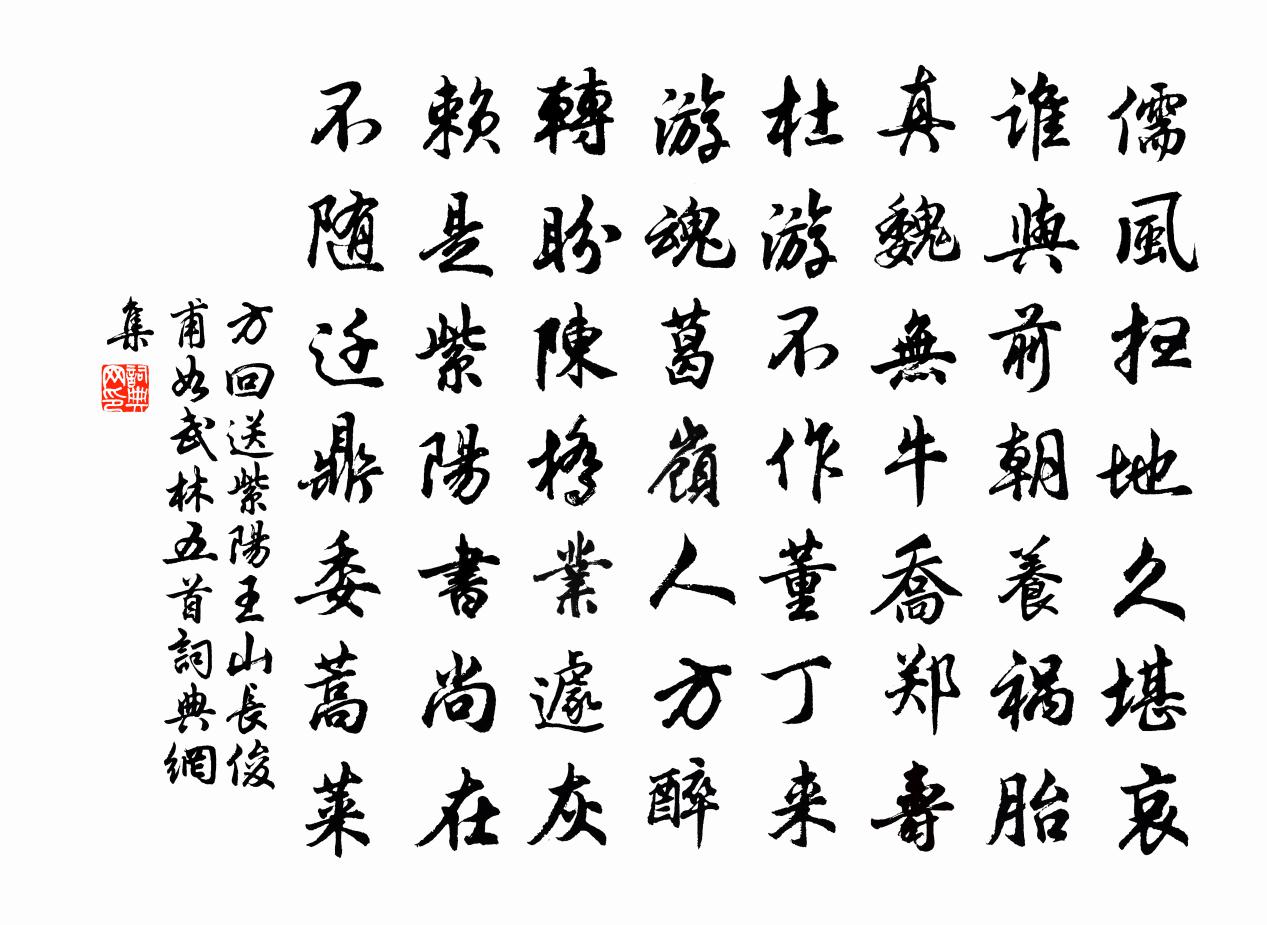 儒風扫地久堪哀
谁與前朝養祸胎
真魏無牛喬郑壽
杜游不作董丁来
游魂葛嶺人方醉
轉盼陳橋業遽灰
赖是紫陽書尚在
不随迁鼎委蒿莱
方回送紫陽王山長俊
甫如武林五首詞典網
集
詞典网印